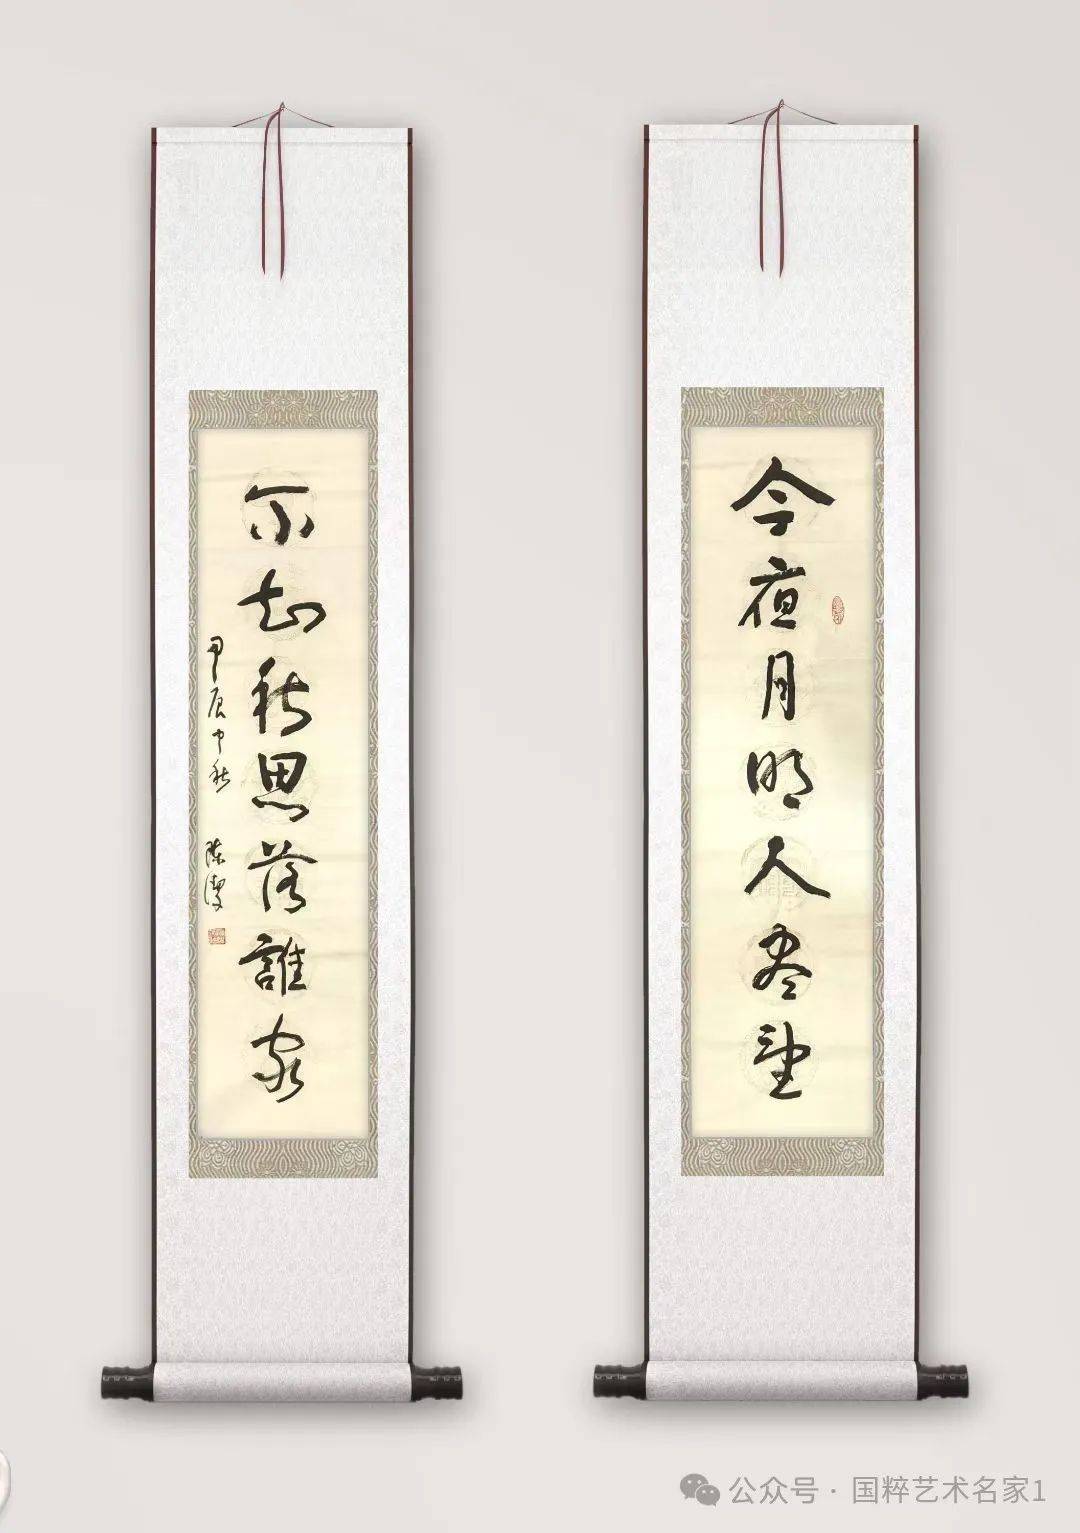 今夜月明人尽望
不知秋思落誰家
甲辰中秋 陈潔
公众号 · 国粹艺术名家1